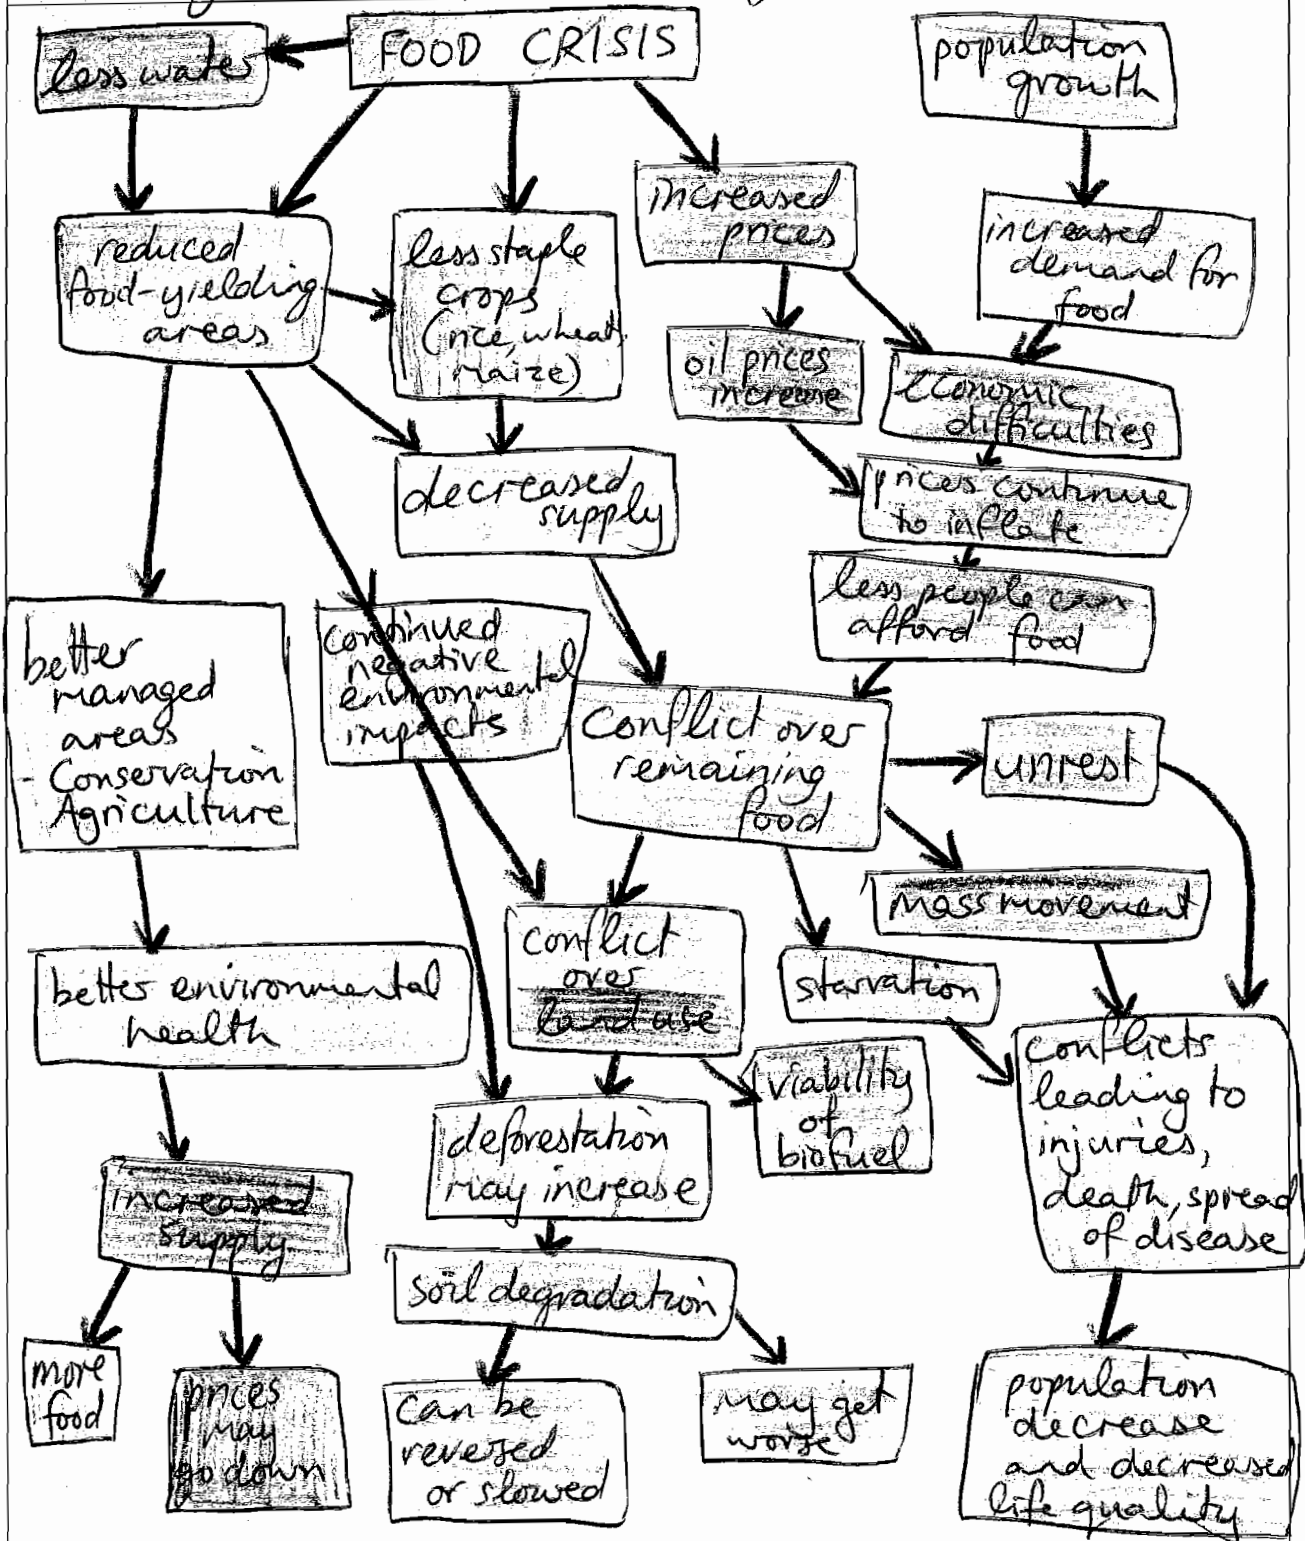 less water
FOOD CRISIS
population
growth
increased
prices
increased
demand for
food
reduced
food-yielding
areas
less staple
crops
(rice, wheat,
maize)
oil prices
increase
economic
difficulties
decreased
supply
prices continue
to inflate
less people can
afford food
better
managed
areas
- Conservation
Agriculture
continued
negative
environmental
impacts
Conflict over
remaining
food
unrest
mass movement
better environmental
health
conflict
over
land use
starvation
viability
of
biofuel
conflicts
leading to
injuries,
death, spread
of disease
deforestation
may increase
increased
supply
soil degradation
more
food
prices
may
go down
can be
reversed
or slowed
may get
worse
population
decrease
and decreased
life quality